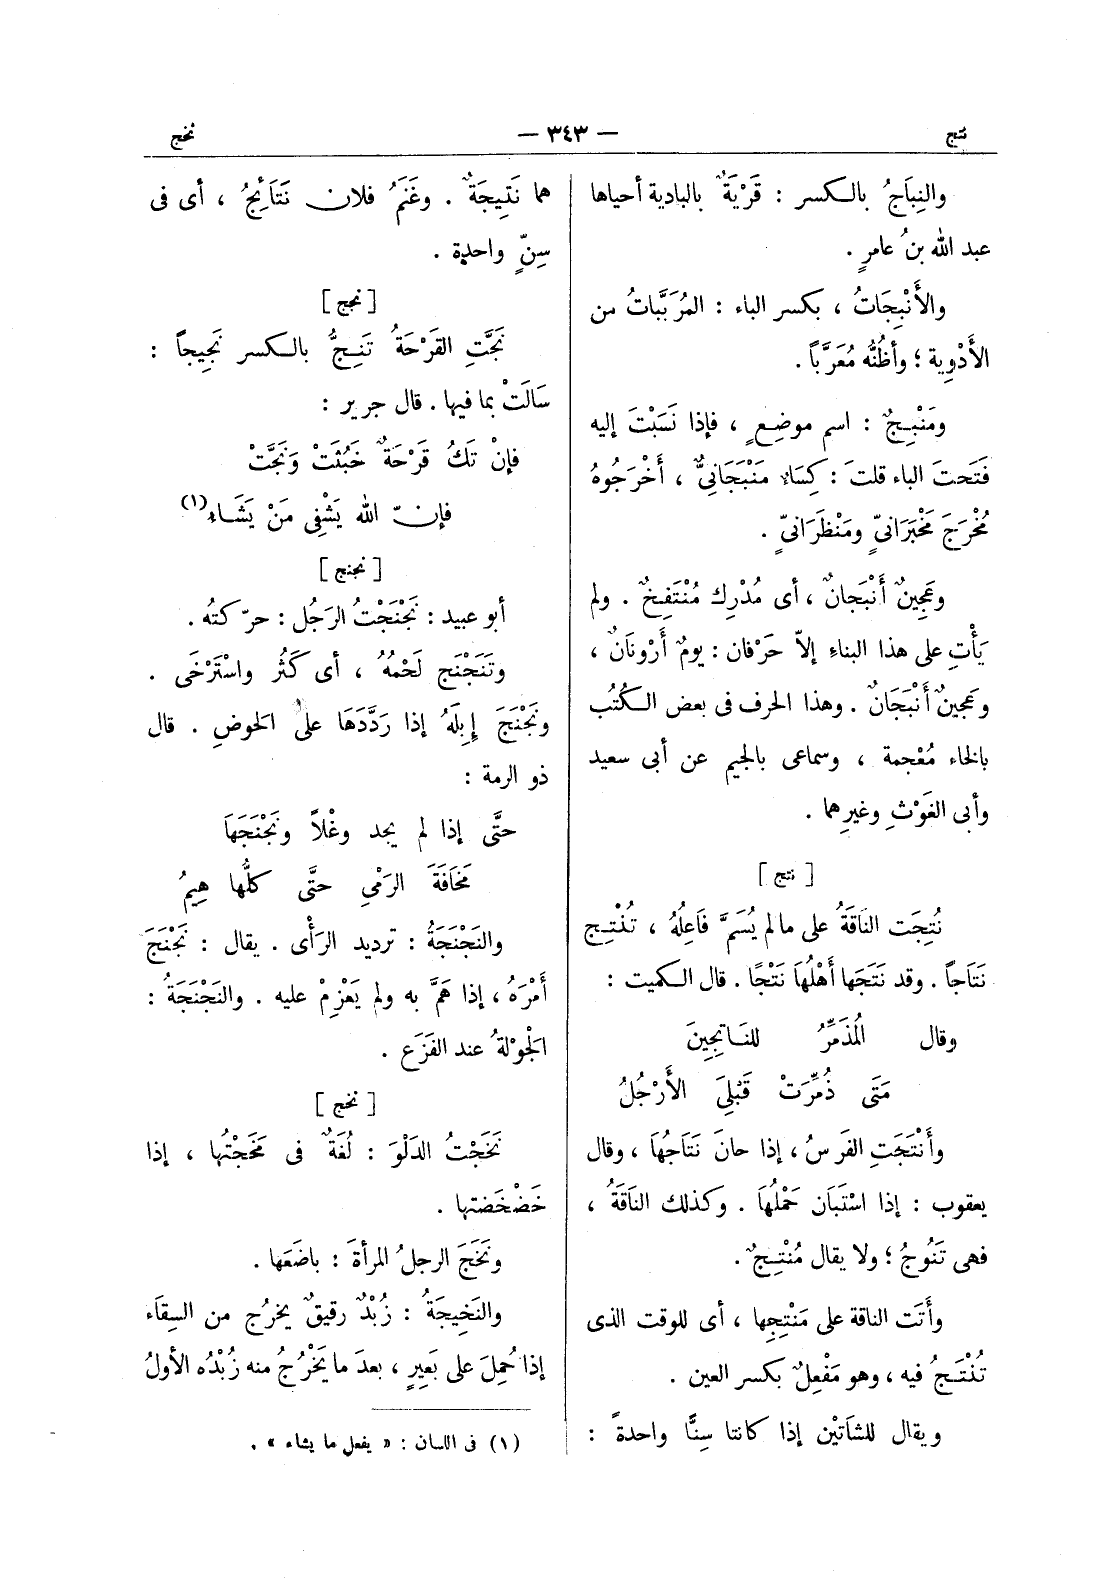 نتج
— ٣٤٣ —
نخج
والنِبَاجُ بالكسر : قَرْيَةٌ بالبادية أحياها
عبد الله بنُ عامرٍ .
والأَنْبِجَاتُ ، بكسر الباء : المُرَبَّباتُ من
الأَدْوِية ؛ وأظُنُّه مُعَرَّباً .
ومَنْبِجٌ : اسم موضِعٍ ، فإذا نَسَبْتَ إليه
فَتَحتَ الباء قلتَ : كِسَاءٌ مَنْبَجَانِيٌّ ، أَخْرَجُوهُ
مُخْرَجَ مَخْبَرَانِيٍّ ومَنْظَرَانِيٍّ .
وعَجِينٌ أَنْبَجانٌ ، أى مُدْرِك مُنْتَفِخٌ . ولم
يَأْتِ على هذا البناءِ إلاّ حَرْفان : يومٌ أَرْونَانٌ ،
وعجينٌ أَنْبَجَانٌ . وهذا الحرف فى بعض الكُتُب
بالخاء مُعْجمة ، وسماعى بالجيم عن أبى سعيد
وأبى الغَوْثِ وغيرِهما .
[ نتج ]
نُتِجَت الناقَةُ على مالم يُسَمَّ فَاعِلُهُ ، تُنْتِج
نَتَاجاً . وقد نَتَجَها أَهْلُهَا نَتْجًا . قال الكميت :
وقال المُذَمِّرُ للنَاتِجِينَ
مَتَى ذُمِّرَتْ قَبْلِيَ الأَرْجُلُ
وأَنْتَجَتِ الفَرَسُ ، إذا حانَ نَتَاجُهَا ، وقال
يعقوب : إذا اسْتَبَان حَمْلُهَا . وكذلك الناقَةُ ،
فهى نَتُوجٌ ؛ ولا يقال مُنْتِجٌ .
وأَتَت الناقة على مَنْتِجِها ، أى للوقت الذى
تُنْتَجُ فيه ، وهو مَفْعِلٌ بكسر العين .
ويقال للشاتَيْن إذا كانتا سِنًّا واحدةً :
هما نَتِيجَةٌ . وغَنَمُ فلان نَتَائِجُ ، أى فى
سِنٍّ واحدة .
[ نجج ]
نَجَّتِ القَرْحَةُ تَنِجُّ بالكسر نَجِيجاً :
سَالَتْ بما فيها . قال جرير :
فإنْ تَكُ قَرْحَةٌ خَبُثَتْ وَنَجَّتْ
فإنّ الله يَشْفِى مَنْ يَشَاءُ(١)
[ نجنج ]
أبو عبيد : نَجْنَجْتُ الرَجُل : حرّكتُه .
وتَنَجْنَج لَحْمُهُ ، أى كَثُر واسْتَرْخَى .
ونَجْنَجَ إِبِلَهُ إذا رَدَّدَهَا على الحوضِ . قال
ذو الرمة :
حتَّى إذا لم يجد وغْلاً ونَجْنَجَهَا
مَخَافَةَ الرَمْىِ حتَّى كلُّها هِيمُ
والنَجْنَجَةُ : ترديد الرَأْى . يقال : نَجْنَجَ
أَمْرَهُ ، إذا هَمَّ به ولم يَعْزِمْ عليه . والنَجْنَجَةُ :
الجَوْلةُ عند الفَزَع .
[ نخج ]
نَخَجْتُ الدَلْوَ : لُغَةٌ فى مَخَجْتُها ، إذا
خَضْخَضتها .
ونَخَجَ الرجلُ المرأةَ : باضَعَها .
والنَخِيجَةُ : زُبْدٌ رقيقٌ يخرُج من السِقَاء
إذا حُمِلَ على بَعِيرٍ ، بعدَ ما يَخْرُجُ منه زُبْدُه الأولُ
(١) فى اللسان : « يفعل ما يشاء » .